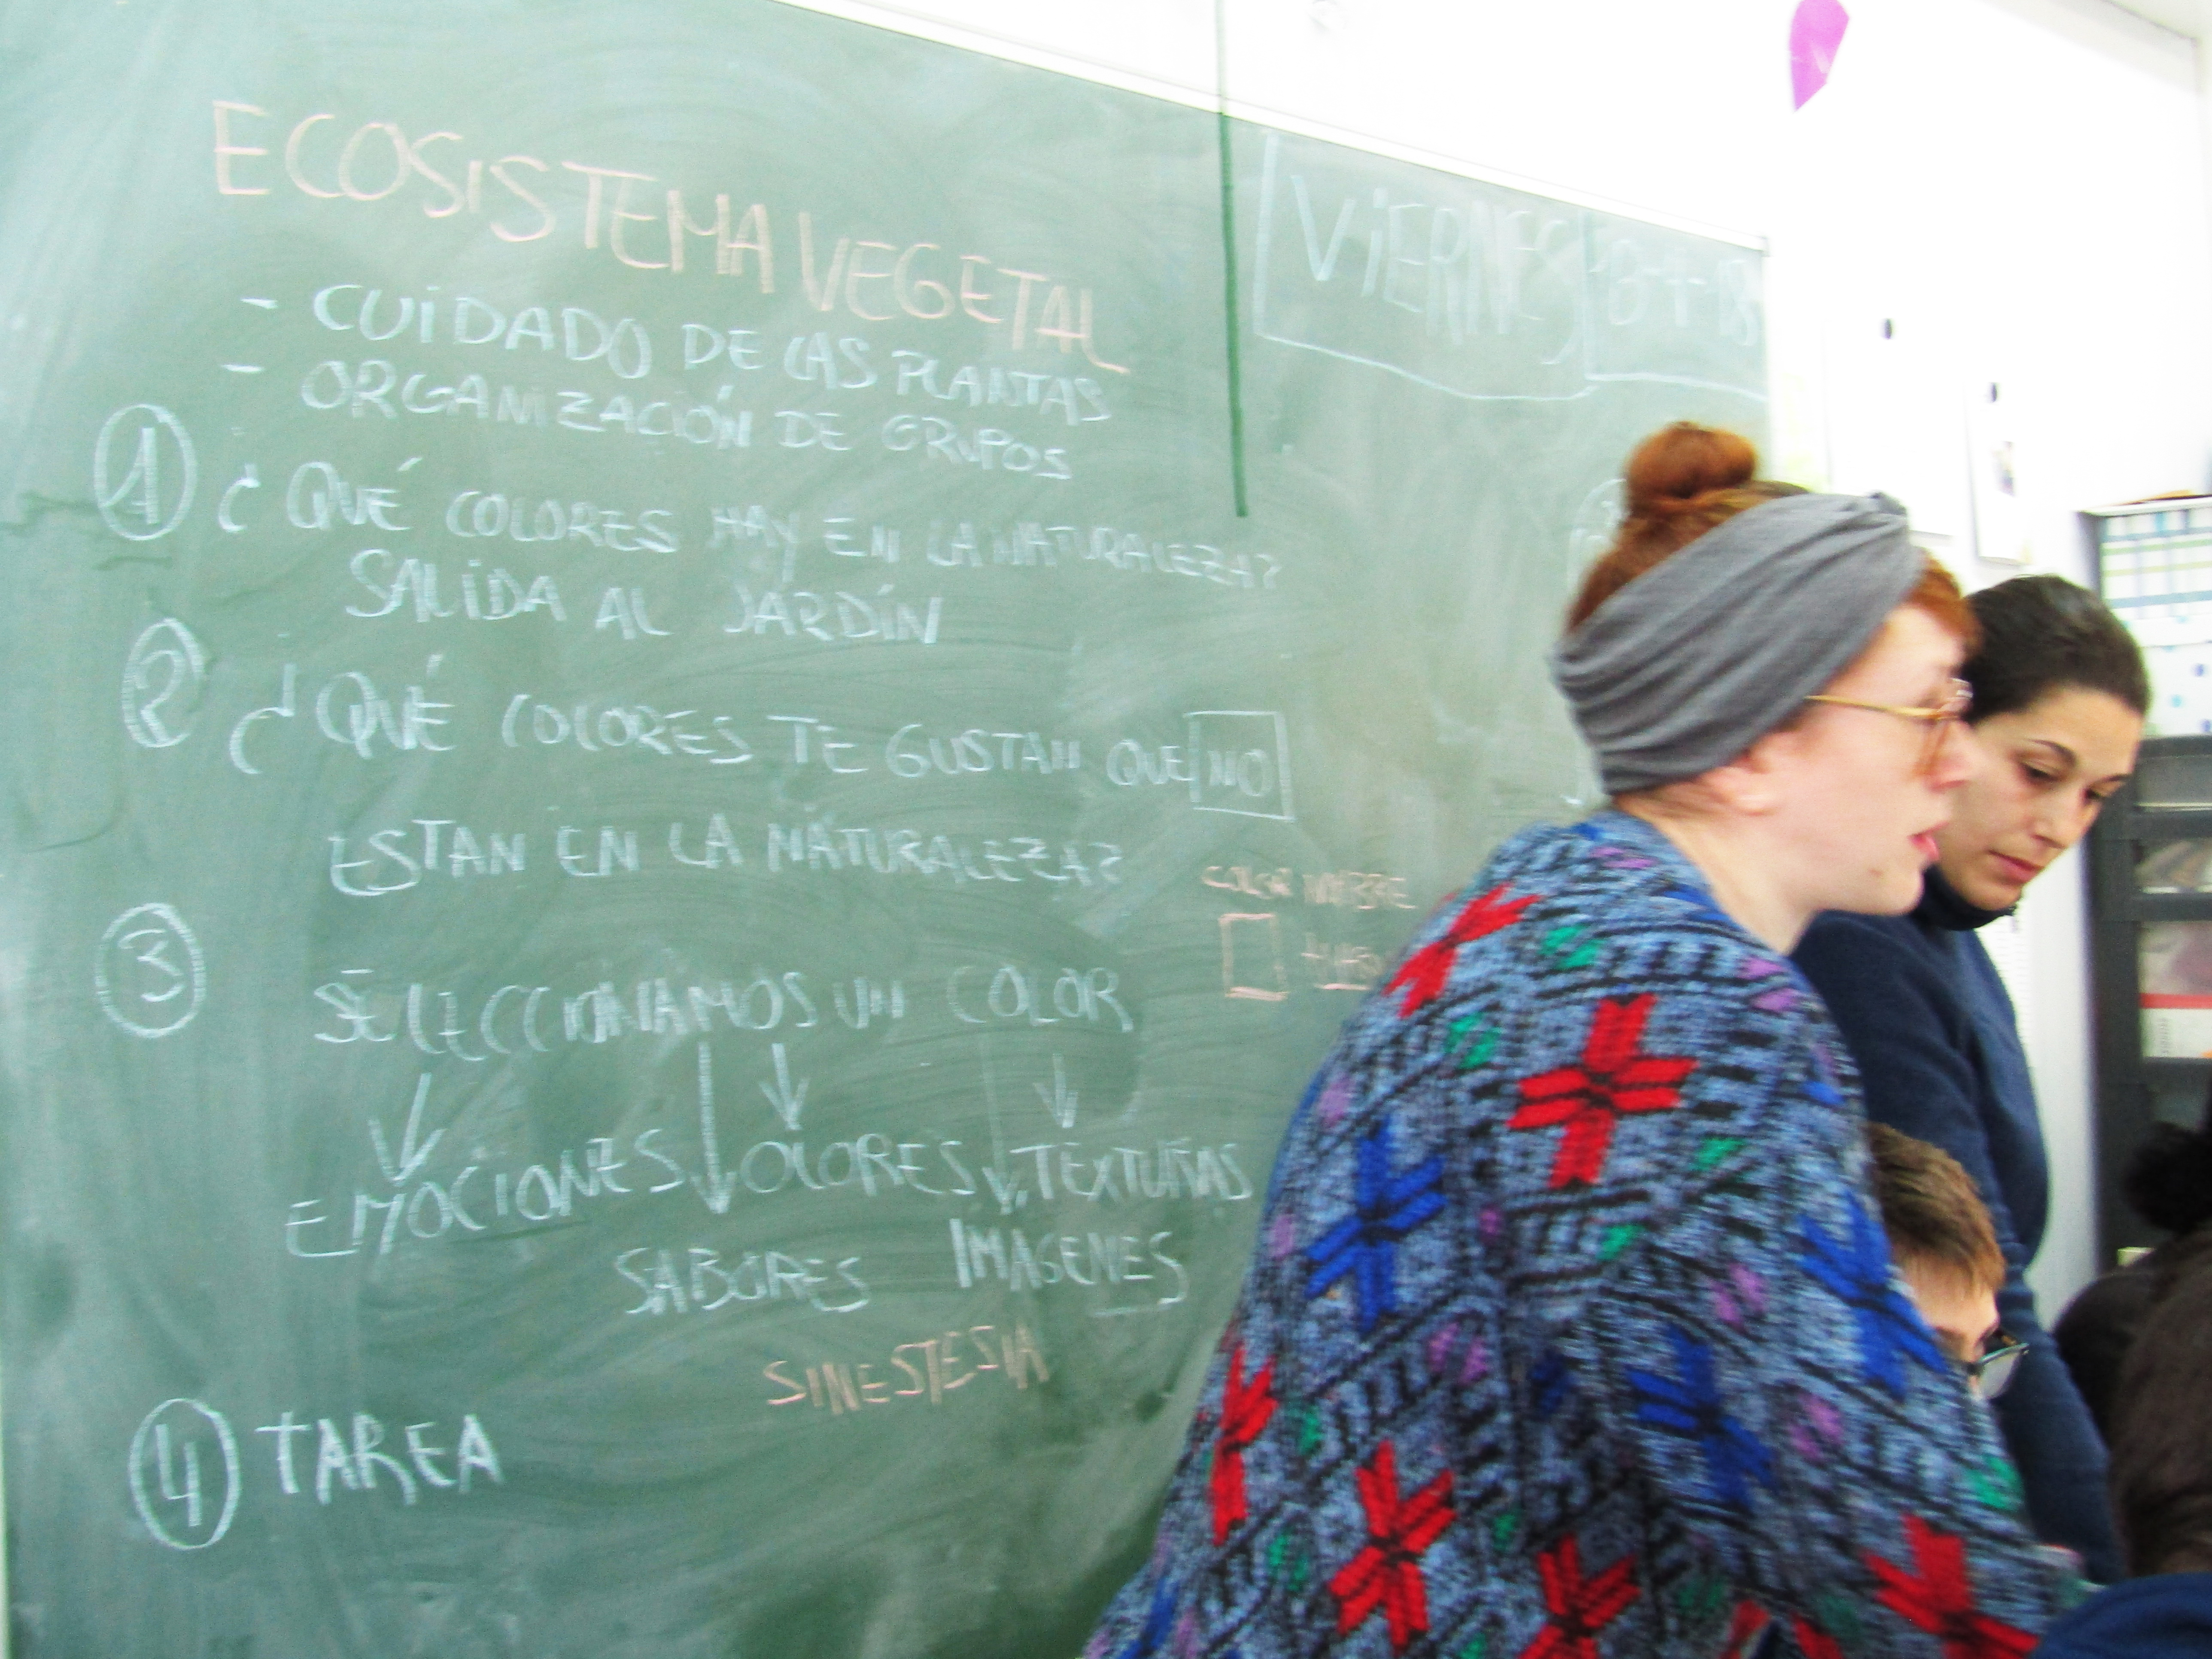 ECOSISTEMA VEGETAL
- CUIDADO DE LAS PLANTAS
- ORGANIZACIÓN DE GRUPOS
1 ¿QUÉ COLORES HAY EN LA NATURALEZA?
SALIDA AL JARDÍN
2 ¿QUÉ COLORES TE GUSTAN QUE NO
ESTAN EN LA NATURALEZA?
3 SELECCIONAMOS UN COLOR
EMOCIONES OLORES TEXTURAS
SABORES IMAGENES
SINESTESIA
4 TAREA
VIERNES
COLOR NOMBRE